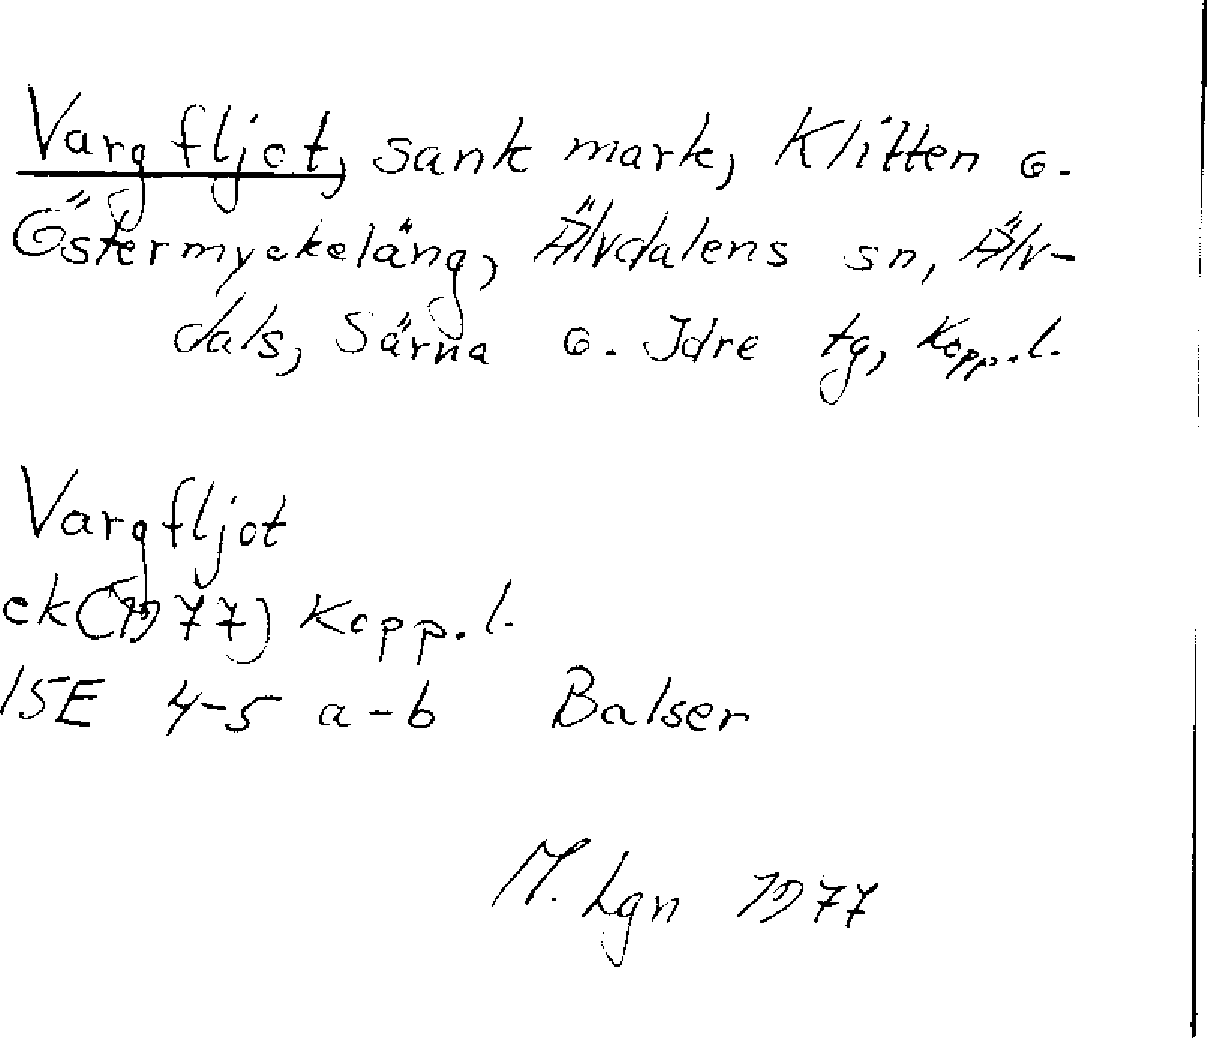 Vargfljot, sank mark, Klitten o.
Östermyckeläng, Älvdalens sn, Älv-
dals, Särna o. Idre tg, Kopp.l.
Vargfljot
ek (1977) Kopp.l.
15E 4-5 a-b Balser
M. Lgn 1977